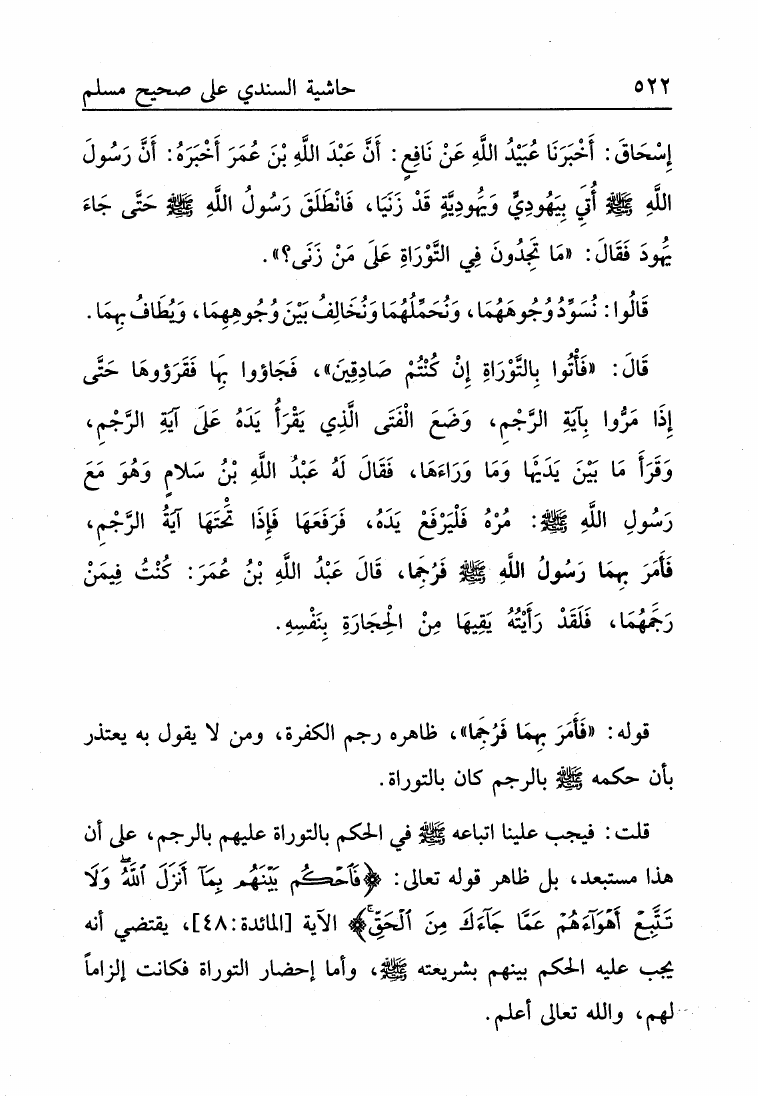 ٥٢٢ حاشية السندي على صحيح مسلم
إِسْحَاقَ: أَخْبَرَنَا عُبَيْدُ اللَّهِ عَنْ نَافِعٍ: أَنَّ عَبْدَ اللَّهِ بْنَ عُمَرَ أَخْبَرَهُ: أَنَّ رَسُولَ
اللَّهِ ﷺ أُتِيَ بِيَهُودِيٍّ وَيَهُودِيَّةٍ قَدْ زَنَيَا، فَانْطَلَقَ رَسُولُ اللَّهِ ﷺ حَتَّى جَاءَ
يَهُودَ فَقَالَ: «مَا تَجِدُونَ فِي التَّوْرَاةِ عَلَى مَنْ زَنَى؟».
قَالُوا: نُسَوِّدُ وُجُوهَهُمَا، وَنُحَمِّلُهُمَا وَنُخَالِفُ بَيْنَ وُجُوهِهِمَا، وَيُطَافُ بِهِمَا.
قَالَ: «فَأْتُوا بِالتَّوْرَاةِ إِنْ كُنْتُمْ صَادِقِينَ»، فَجَاؤوا بِهَا فَقَرَؤوهَا حَتَّى
إِذَا مَرُّوا بِآيَةِ الرَّجْمِ، وَضَعَ الْفَتَى الَّذِي يَقْرَأُ يَدَهُ عَلَى آيَةِ الرَّجْمِ،
وَقَرَأَ مَا بَيْنَ يَدَيْهَا وَمَا وَرَاءَهَا، فَقَالَ لَهُ عَبْدُ اللَّهِ بْنُ سَلامٍ وَهُوَ مَعَ
رَسُولِ اللَّهِ ﷺ: مُرْهُ فَلْيَرْفَعْ يَدَهُ، فَرَفَعَهَا فَإِذَا تَحْتَهَا آيَةُ الرَّجْمِ،
فَأَمَرَ بِهِمَا رَسُولُ اللَّهِ ﷺ فَرُجِمَا، قَالَ عَبْدُ اللَّهِ بْنُ عُمَرَ: كُنْتُ فِيمَنْ
رَجَمَهُمَا، فَلَقَدْ رَأَيْتُهُ يَقِيهَا مِنْ الْحِجَارَةِ بِنَفْسِهِ.
قوله: «فَأَمَرَ بِهِمَا فَرُجِمَا»، ظاهره رجم الكفرة، ومن لا يقول به يعتذر
بأن حكمه ﷺ بالرجم كان بالتوراة.
قلت: فيجب علينا اتباعه ﷺ في الحكم بالتوراة عليهم بالرجم، على أن
هذا مستبعد، بل ظاهر قوله تعالى: ﴿فَٱحۡكُم بَيۡنَهُم بِمَآ أَنزَلَ ٱللَّهُۖ وَلَا
تَتَّبِعۡ أَهۡوَآءَهُمۡ عَمَّا جَآءَكَ مِنَ ٱلۡحَقِّۚ﴾ الآية [المائدة:٤٨]، يقتضي أنه
يجب عليه الحكم بينهم بشريعته ﷺ، وأما إحضار التوراة فكانت إلزاماً
لهم، والله تعالى أعلم.